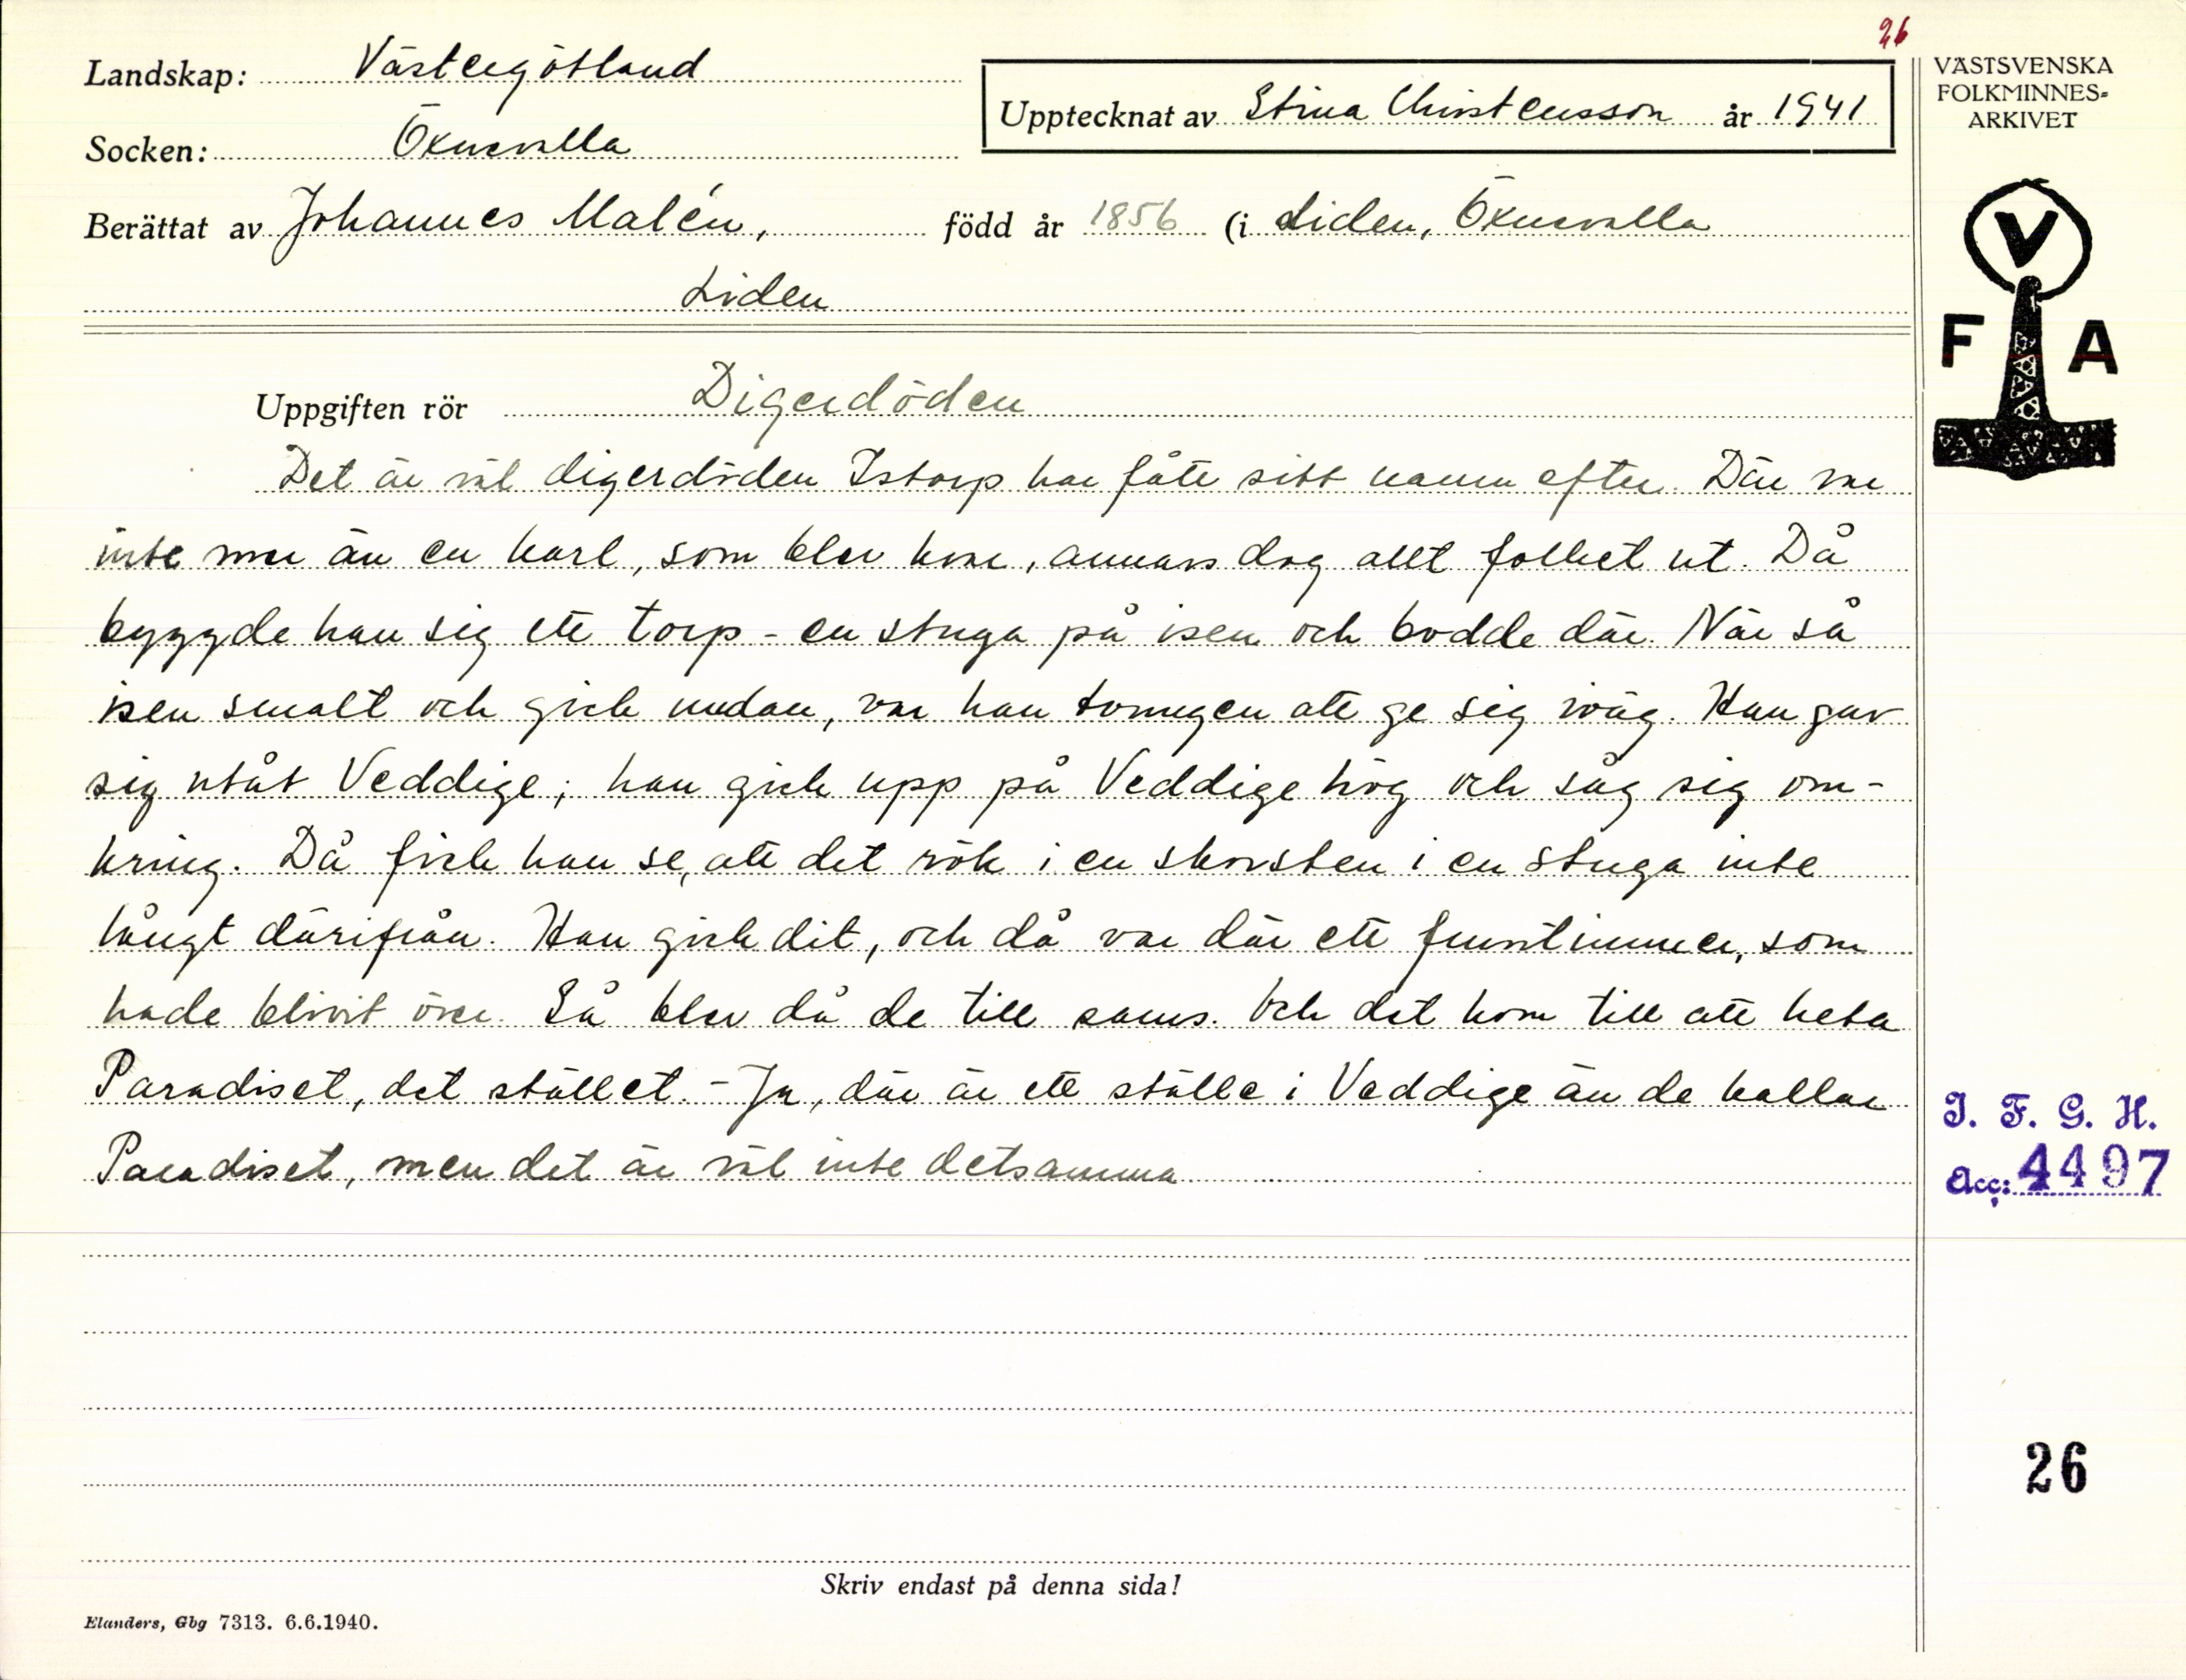 26
Landskap: Västergötland
Upptecknat av Stina Christensson år 1941
Socken: Öxnevalla
Berättat av Johannes Malén, född år 1856 (i Liden, Öxnevalla
Liden
Uppgiften rör Digerdöden
Det är väl digerdöden Istorp har fått sitt namn efter. Där var
inte mer än en karl, som blev kvar, annars dog allt folket ut. Då
byggde han sig ett torp - en stuga på isen och bodde där. När så
isen smalt och gick undan, var han tvungen att ge sig iväg. Han gav
sig utåt Veddige; han gick upp på Veddige hög och såg sig om-
kring. Då fick han se, att det rök i en skorsten i en stuga inte
långt därifrån. Han gick dit, och då var där ett fruntimmer, som
hade blivit över. Så blev då de till sams. Och det kom till att heta
Paradiset, det stället. - Ja, där är ett ställe i Veddige än de kallar
Paradiset, men det är väl inte detsamma
Skriv endast på denna sida!
Elanders, Gbg 7313. 6.6.1940.
VÄSTSVENSKA
FOLKMINNES=
ARKIVET
V
F A
I. F. G. H.
Acc: 4497
26